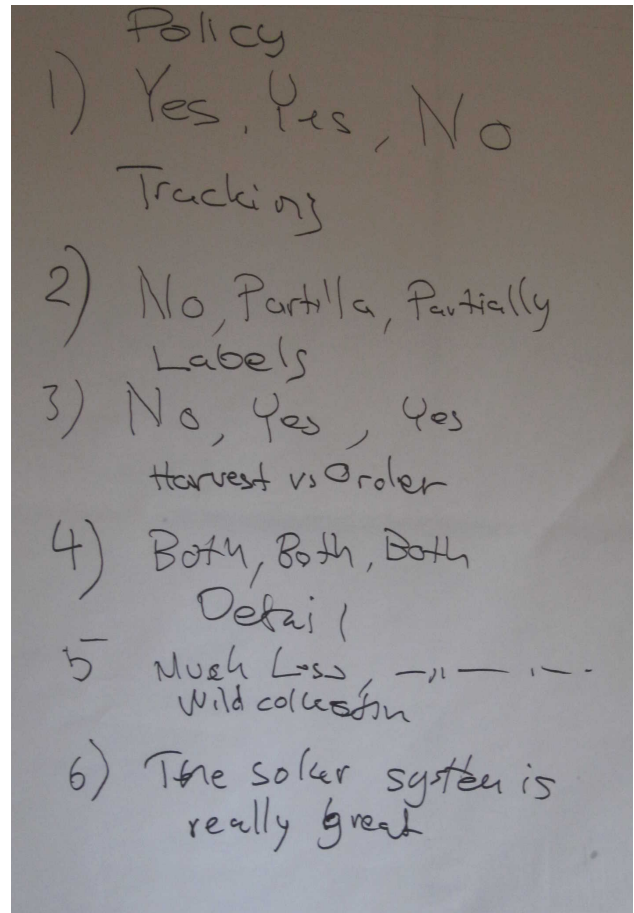 Policy
1) Yes, Yes, No
Tracking
2) No, Partilla, Partially
Labels
3) No, Yes, Yes
Harvest vs Order
4) Both, Both, Both
Detail
5 Much Less, —,,— —,,—
Wild collection
6) The solar system is
really great